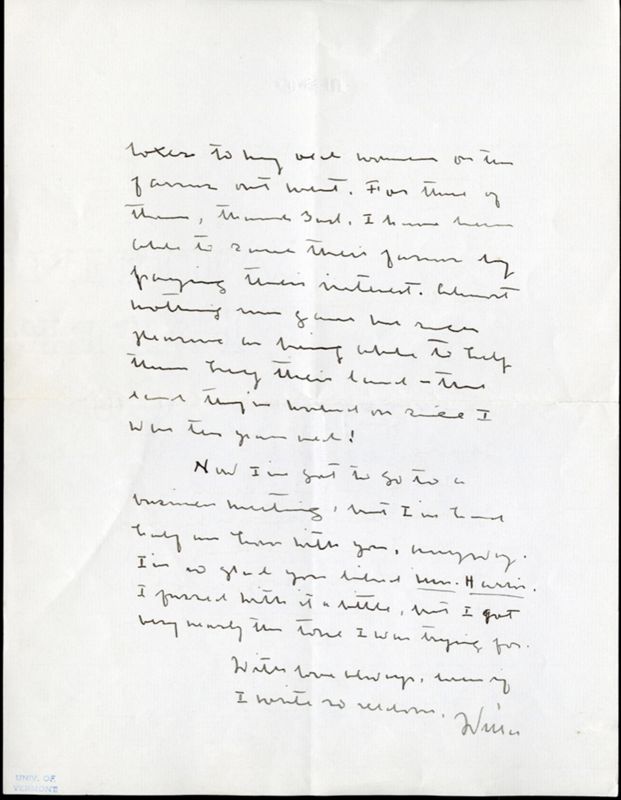 boxes to my old women on the
farms out west. For three of
them, thank God, I have been
able to save their farms by
paying their interest. Almost
nothing ever gave me such
pleasure as being able to help
them keep their land - the
land they've worked on since I
was ten years old!
Now I've got to go to a
business meeting, but I've had
half an hour with you, anyway.
I'm so glad you liked Mrs. Harris.
I fussed with it a little, but I got
very nearly the tone I was trying for.
With love always, even if
I write so seldom.
Willa
UNIV. OF
VERMONT